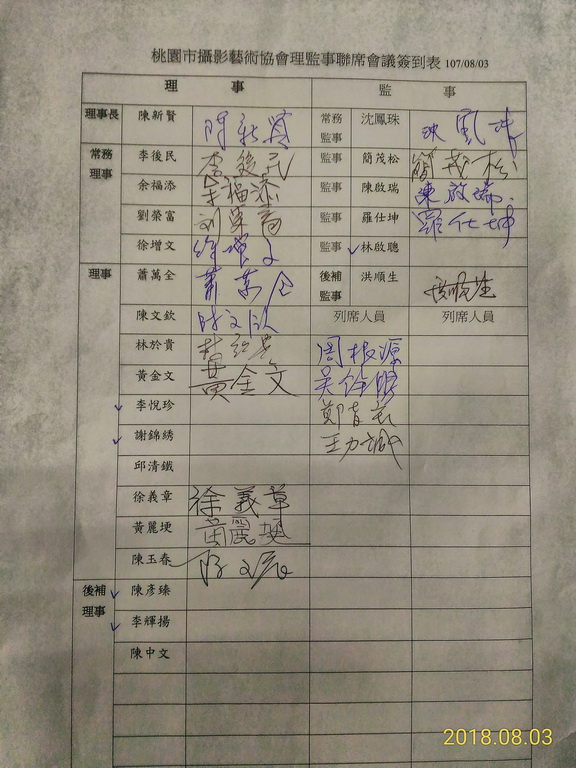 桃園市攝影藝術協會理監事聯席會議簽到表 107/08/03
理 事 監 事
理事長 陳新賢 陳新賢 常務監事 沈鳳珠 沈鳳珠
常務理事 李後民 李後民 監事 簡茂松 簡茂松
余福添 余福添 監事 陳啟瑞 陳啟瑞
劉榮富 刘榮富 監事 羅仕坤 羅仕坤
徐增文 徐增文 監事 林啟聰
理事 蕭萬全 蕭萬全 後補監事 洪順生 洪順生
陳文欽 陳文欽 列席人員 列席人員
林於貴 周根源
黃金文 黃金文
李悅珍
謝錦綉 王力誠
邱清鐵
徐義章 徐義章
黃麗埂 黃麗埂
陳玉春
後補理事 陳彥臻
李輝揚
陳中文
2018.08.03